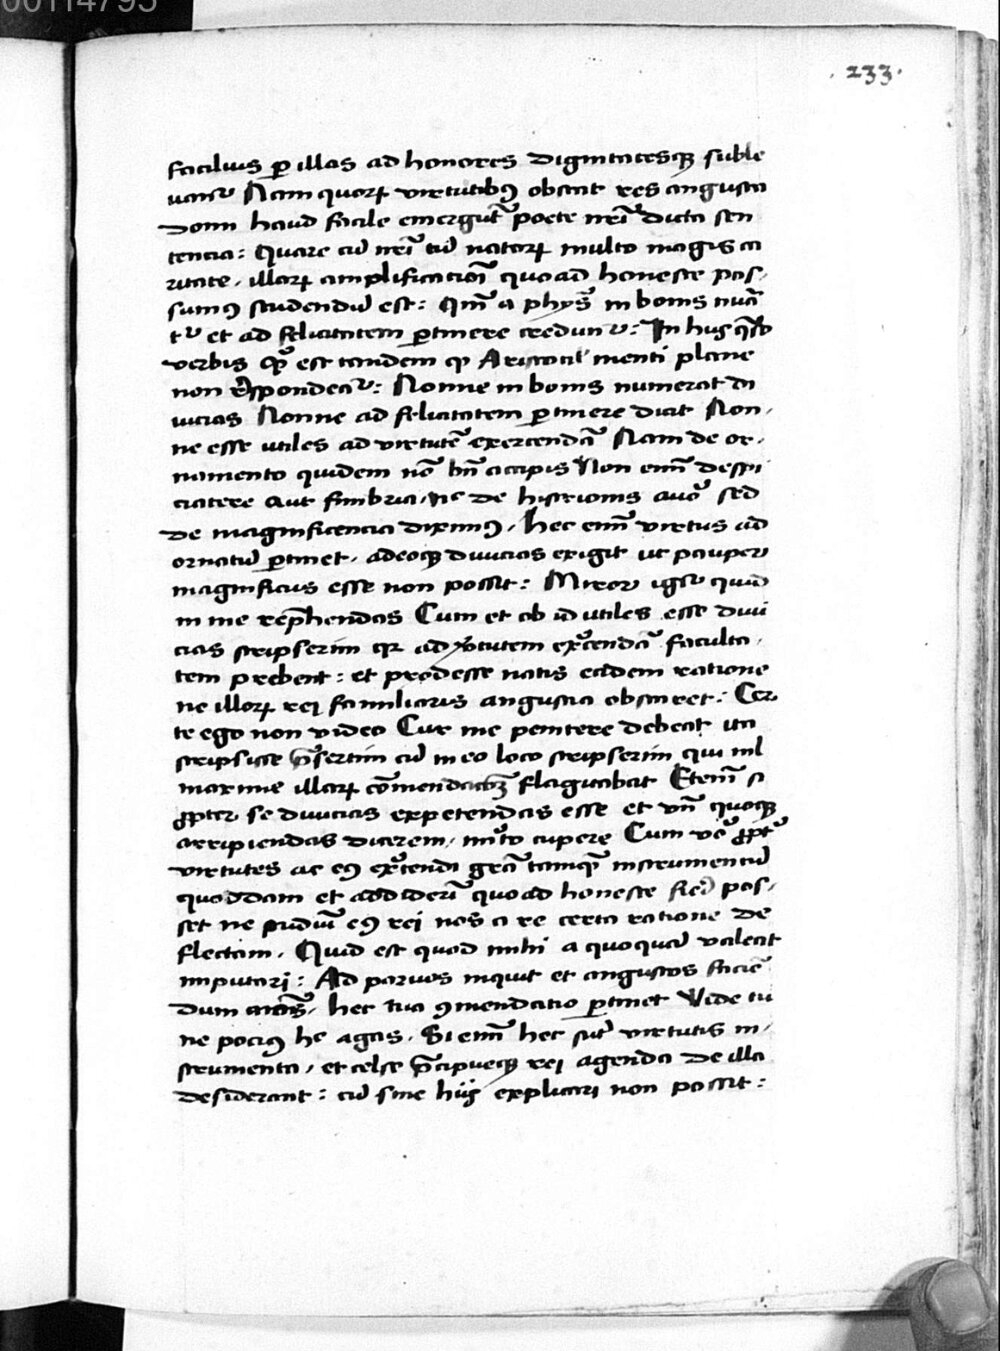 00114795
. 233.
faciluis p illas ad honores dignitatesqꝫ suble
uantᷣ Nam quoꝝ virtutibꝫ obstat res angusta
domi haud facile emergūt poete nrī dicta sen
tencia : Quare cū nrī tū natoꝝ multo magis ca
ritate . illoꝝ amplificationī quoad honeste pos-
sumꝫ studendū est : Qm̄ a phys̄ in bonis nuā
tᷣ et ad felicitatem ꝑtinere creduntᷣ : In hijs q̄so
verbis qͥ est tandem ꝙ Aristotil menti plane
non r̄spondeatᷣ : Nonne in bonis numerat di
uicias Nonne ad felicitatem ꝑtinere dicit Non-
ne esse utiles ad virtutē exercendā Nam de or-
namento quidem nō bn̄ accipis Non enī de
aut fimbria . de histrionis sed
de magnificencia diximꝫ . Hec enī virtus ad
ornatū ꝑtinet . adeoqꝫ diuicias exigit ut pauper
magnificus esse non possit : Miror igᷣ quid
in me rep̄hendas Cum et ob id utiles esse diui
cias scripserim qꝛ ad v̓tutem exᷣcendā faculta-
tem prebent : et prodesse natis eadem ratione
ne illoꝝ rei familiaris angustia obstaret : Cer
te ego non video Cur me penitere debeat ita
scripsisse p̄sertim cū in eo loco scripserim qui
maxime illaꝝ cōmendacōꝫ flagitabat Etenī si
ꝓpter se diuicias expetendas esse et vn̄ quoqꝫ
arripiendas dicerem . cupere Cum vᵒ ꝓpt
virtutes ac eꝫ exᷣcendi grā tamq̄ instrumentū
quoddam et addiderī quoad honeste fieri pos-
set ne eꝫ rei nos a re certa ratione de
flectam . Quid est quod mihi a quoquā valeat
imputari : Ad paruos inquit et angustos
dum . hec tua ꝯmendatio ꝑtinet Vide tu
ne pociꝫ hᵉ agas . Si enī hec sūt virtutis in-
strumenta . et celse p̄cipueqꝫ rei agenda de illa
desiderant : cū sine hijs explicari non possit :